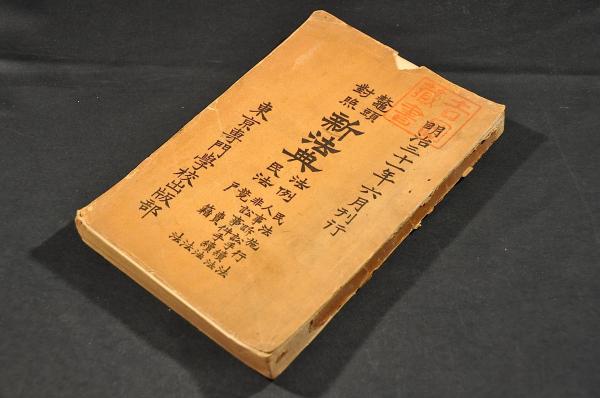 明治三十一年六月刊行
鼇頭
對照
新法典
法例
民法
民法施行法
人事訴訟手續法
非訟事件手續法
競賣法
戸籍法
東京專門學校出版部
藏書